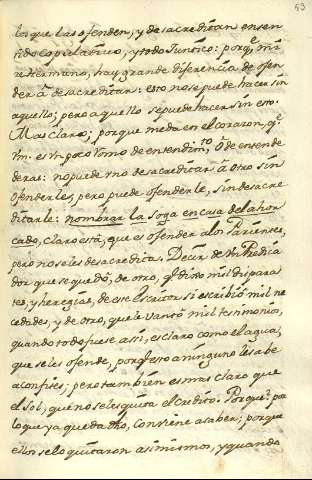 53
lo que las ofenden, y desacreditan en sen-
tido copulativo, y todo Junto: porq.e mi-
re hermano, hay grande diferencia de ofen-
der à desacreditar: esto no se puede hacer sin
aquello; pero aquello se puede hacer sin esto.
Mas claro; porque me da en el corazon, q.e
Vm. es un poco romo de entendim.to, ò de entende-
deras: no puede vno desacreditar à otro sin
ofenderle, pero puede ofenderle, sin desacre-
ditarle: nombrar la soga en casa del ahor-
cado, claro està, que es ofender a los Parientes,
pero no se les desacredita. Decir de Vn Predica-
dor que se quedò, de otro, q.e dixo mil dispara-
tes, y heregias, de ese Escritor si escribiò mil ne-
cedades, y de otro, que levantò mil testimonios,
quando todo fuese asi, es claro como el agua,
que se les ofende, por q.e esto a ninguno le sabe
a confites; pero tambien es mas claro que
el sol, que no se les quita el credito. Porque? por
lo que ya queda dho, conviene a saber; porque
ellos se lo quitaron asi mismos, y quando